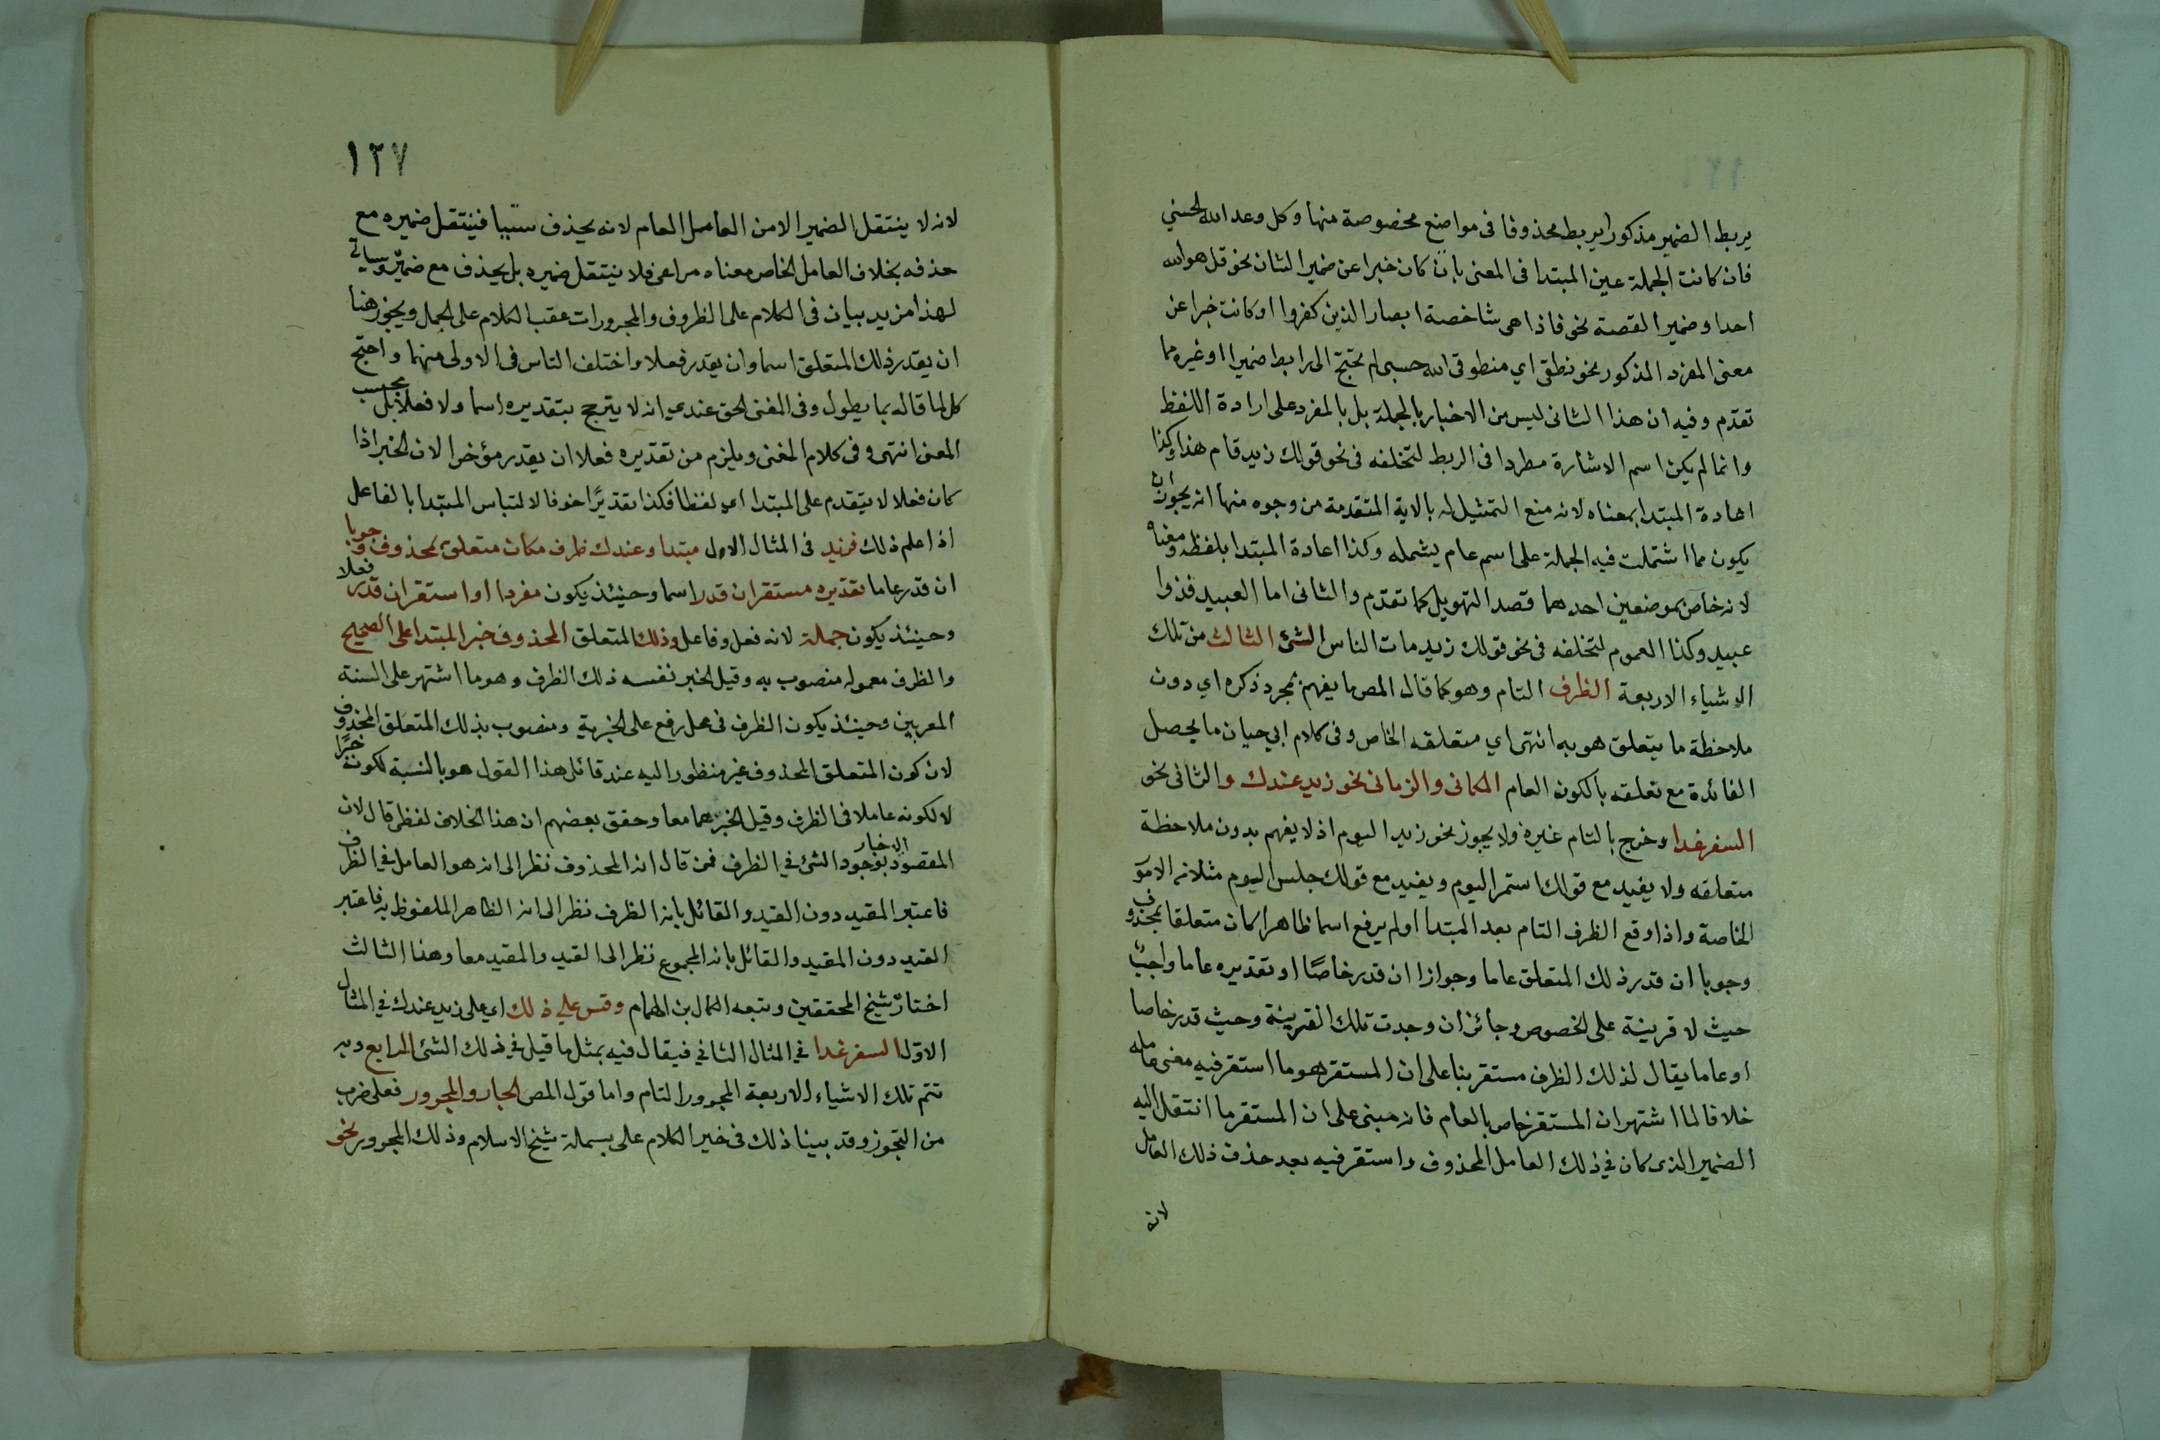 يربط الضمير مذكورا يربط محذوفا فى مواضع مخصوصة منها وكل وعد الله الحسني
فان كانت الجملة عين المبتدا فى المعنى بان كان خبرا عن ضمير الشان نحو قل هو الله
احد او ضمير القصة نحو فاذا هى شاخصة ابصار الذين كفروا او كانت خبرا عن
معنى المفرد المذكور نحو نطقى اي منطوقى الله حسبى لم تحتج الى رابط ضميرا او غيره مما
تقدم وفيه ان هذا الثانى ليس من الاخبار بالجملة بل بالمفرد على ارادة اللفظ
وانما لم يكن اسم الاشارة مطردا فى الربط لتخلفه فى نحو قولك زيد قام هذا وكذا
اعادة المبتدا بمعناه لانه منع التمثيل له بالاية المتقدمة من وجوه منها انه يجوز ان
يكون مما اشتملت فيه الجملة على اسم عام يشمله وكذا اعادة المبتدا بلفظه ومعناه
لانه خاص بموضعين احدهما قصد التهويل كما تقدم والثانى اما العبيد فذوا
عبيد وكذا العموم لتخلفه فى نحو قولك زيد مات الناس الشئ الثالث من تلك
الاشياء الاربعة الظرف التام وهو كما قال المص ما يفهم بمجرد ذكره اي دون
ملاحظة ما يتعلق هو به انتهى اي متعلقه الخاص وفى كلام ابي حيان ما يحصل
الفائدة مع تعلقه بالكون العام المكانى والزمانى نحو زيد عندك والثانى نحو
السفر غدا وخرج بالتام غيره ولا يجوز نحو زيد اليوم اذ لا يفهم بدون ملاحظة
متعلقه ولا يفيد مع قولك استمر اليوم ويفيد مع قولك جلس اليوم مثلا نه الامور
الخاصة واذا وقع الظرف التام بعد المبتدا اولم يرفع اسما ظاهرا كان متعلقا بمحذوف
وجوبا ان قدر ذلك المتعلق عاما وجوازا ان قدر خاصا او تقديره عاما واجب
حيث لا قرينة على الخصوص وجائز ان وجدت تلك القرينة وحيث قدر خاصا
او عاما يقال لذلك الظرف مستقر بنا على ان المستقر هو ما استقر فيه معنى عامله
خلافا لما اشتهر ان المستقر خاص بالعام فانه مبنى على ان المستقر ما انتقل اليه
الضمير الذى كان في ذلك العامل المحذوف واستقر فيه بعد حذف ذلك العامل
لانه
١٢٧
لانه لا ينتقل الضمير الا من العامل العام لانه يحذف نسيا فينتقل ضميره مع
حذفه بخلاف العامل الخاص معناه مراعى فلا ينتقل ضميره بل يحذف مع ضميره وسياتى
لهذا مزيد بيان فى الكلام على الظروف والمجرورات عقب الكلام على الجمل ويجوز هنا
ان يقدر ذلك المتعلق اسما وان يقدر فعلا واختلف الناس فى الاولى منهما واحتج
كل لما قاله بما يطول وفى المغنى الحق عندي انه لا يترجح بتقديره اسما ولا فعلا بل بحسب
المعنى انتهى وفى كلام المغنى ويلزم من تقديره فعلا ان يقدر مؤخرا لان الخبر اذا
كان فعلا لا يتقدم على المبتدا اي لفظا فكذا تقديرا خوفا لالتباس المبتدا بالفاعل
اذا علم ذلك فزيد فى المثال الاول مبتدا وعندك ظرف مكان متعلق بمحذوف وجوبا
ان قدر عاما تقديره مستقر ان قدر اسما وحينئذ يكون مفردا او استقر ان قدر فعلا
وحينئذ يكون جملة لانه فعل وفاعل وذلك المتعلق المحذوف خبر المبتدا على الصحيح
والظرف معموله منصوب به وقيل الخبر نفسه ذلك الظرف وهو ما اشتهر على السنة
المعربين وحينئذ يكون الظرف فى محل رفع على الخبرية ومنصوب بذلك المتعلق المحذوف
لان كون المتعلق المحذوف غير منظور اليه عند قائل هذا القول هو بالنسبة لكونه خبرا
لا لكونه عاملا فى الظرف وقيل الخبر هما معا وحقق بعضهم ان هذا الخلاف لفظى قال لان
المقصود الاخبار بوجود الشئ في الظرف فمن قال انه المحذوف نظر الى انه هو العامل في الظرف
فاعتبر المقيد دون القيد والقائل بانه الظرف نظر الى انه الظاهر الملفوظ به فاعتبر
القيد دون المقيد والقائل بانه المجموع نظر الى القيد والمقيد معا وهذا الثالث
اختاره شيخ المحققين وتبعه الكمال بن الهمام وقس علي ذلك اي على زيد عندك في المثال
الاول السفر غدا في المثال الثاني فيقال فيه بمثل ما قيل في ذلك الشئ الرابع وبه
تتم تلك الاشياء الاربعة المجرور التام واما قول المص الجار والمجرور فعلى ضرب
من التجوز وقد بينا ذلك فى خير الكلام على بسملة شيخ الاسلام وذلك المجرور نحو